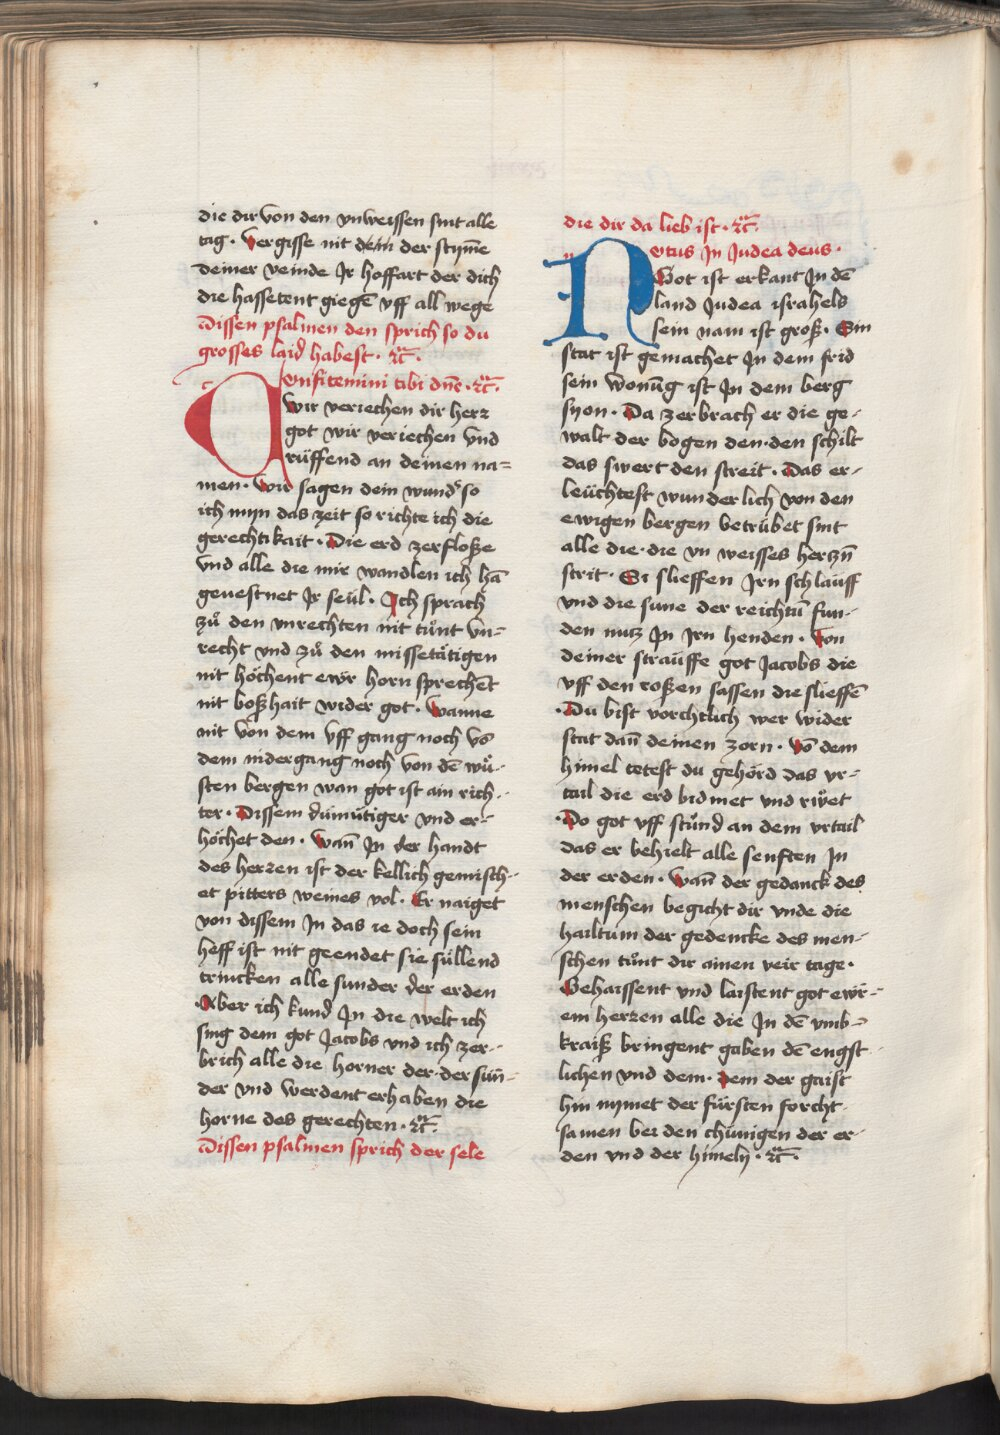 die dir von den vnweissen sint alle
tag · vergisse nit dem der stym̄e
deiner veinde Jr hoffart der dich
die hassetent giegē vff all wege
Dissen psalmen den sprich so du
grosses laid habest · ꝛc̄ ·
Confitemini tibi dn̄e · ꝛc̄ ·
Wir veriechen dir herꝛ
got wir veriechen vnd
rüffend an deinen na=
men · wir sagen dein wund̾ so
ich nyn das zeit so richte ich die
gerechtikait · Die erd zerfloße
vnd alle die mir wandlen ich hā
geuestnet Jr seül · Ich sprach
zů den vnrechten nit tůnt vn=
recht vnd zů den missetätigen
nit höchent ewr horn sprechēt
nit boßhait wider got · Wanne
nit von dem vff gang noch vō
dem nidergang noch von dē wů-
sten bergen wan got ist ain rich-
ter · Dissem dümütiger vnd er-
höchet den · Wan̄ Jn der handt
des herren ist der kellich gemisch-
et pitters weines vol · Er naiget
von dissem Jn das ie doch sein
heff ist nit geendet sie süllend
trincken alle sunder der erden
· Aber ich kund Jn die welt ich
sing dem got Jacobs vnd ich zer-
brich alle die horner der · der sün̄-
der vnd werdent erhaben die
horne des gerechten · ꝛc̄ ·
Dissen psalmen sprich der sele
die dir da lieb ist · ꝛc̄ ·
Notus Jn Judea deus ·
Got ist erkant Jn dē
land Judea israhels
sein nam ist groß · Sin
stat ist gemachet Jn dem frid
sein wonūg ist Jn dem berg
syon · Da zerbrach er die ge-
walt der bogen den · den schilt
das swert den streit · Das er-
leüchtest wunderlich von den
ewigen bergen betrübet sint
alle die · die vn weisses hertzn̄
strit · Si slieffen Jrn schlauff
vnd die sune der reichtū fun-
den nutz Jn Jrn henden · Von
deiner strauffe got Jacobs die
vff den roßen sassen die slieffē
· Du bist vorchtlich wer wider
stat dan̄ deinen zorn · Vō dem
himel tetest du gehörd das vr-
tail die erd bidmet vnd rwet
· Do got vff stůnd an dem vrtail
das er behielt alle senften Jn
der erden · Wan̄ der gedanck des
menschen begicht dir vnde die
hailtum der gedencke des men-
schen tůnt dir ainen veir tage ·
Gehaissent vnd laistent got ewr-
em herren alle die Jn dē vmb-
kraiß bringent gaben dē engst-
lichen vnd dem · dem der gaist
hin nymet der fürsten forcht-
samen bei den chünigen der er-
den vnd der himeln · ꝛc̄ ·